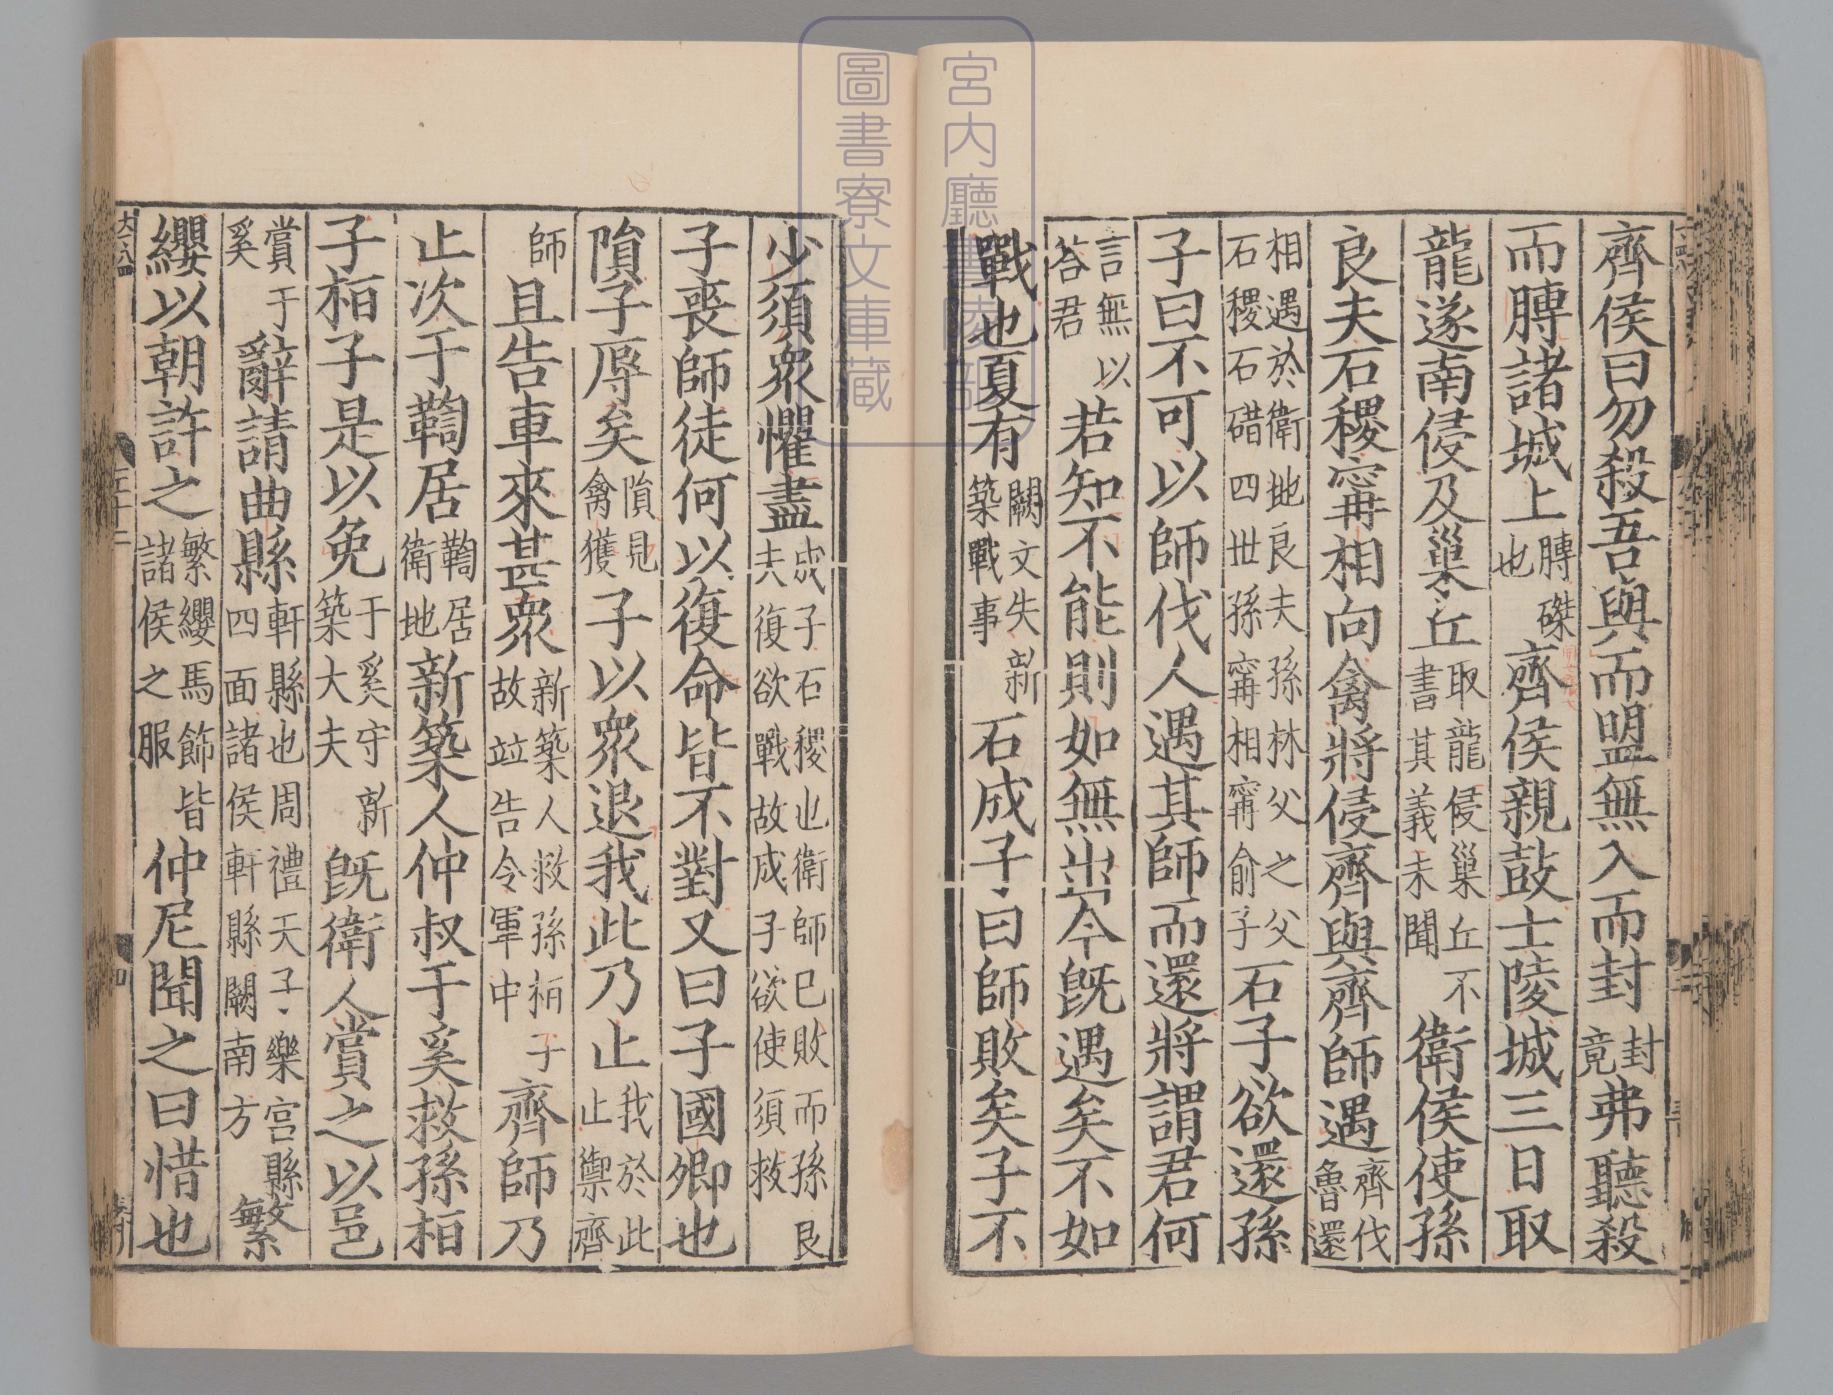 齊侯曰勿殺吾與而盟無入而封封竟弗聽殺
而膊諸城上膊磔也齊侯親鼓士陵城三日取
龍遂南侵及巢丘取龍侵巢丘不書其義未聞衛侯使孫
良夫石稷甯相向禽將侵齊與齊師遇齊伐魯還
相遇於衛地良夫孫林父之父石稷石碏四世孫甯相甯俞子石子欲還孫
子曰不可以師伐人遇其師而還將謂君何
言無以荅君若知不能則如無出今既遇矣不如
戰也夏有闕文失新築戰事石成子曰師敗矣子不
少須衆懼盡成子石稷也衛師已敗而孫良夫復欲戰故成子欲使須救
子喪師徒何以復命皆不對又曰子國卿也
隕子辱矣隕見禽獲子以衆退我此乃止我於此止禦齊
師且告車來甚衆新築人救孫桓子故竝告令軍中齊師乃
止次于鞫居鞫居衛地新築人仲叔于奚救孫桓
子桓子是以免于奚守新築大夫既衛人賞之以邑
賞于奚辭請曲縣軒縣也周禮天子樂宮縣四面諸侯軒縣闕南方繁
纓以朝許之繁纓馬飾皆諸侯之服仲尼聞之曰惜也
宮内廳書陵部
圖書寮文庫藏